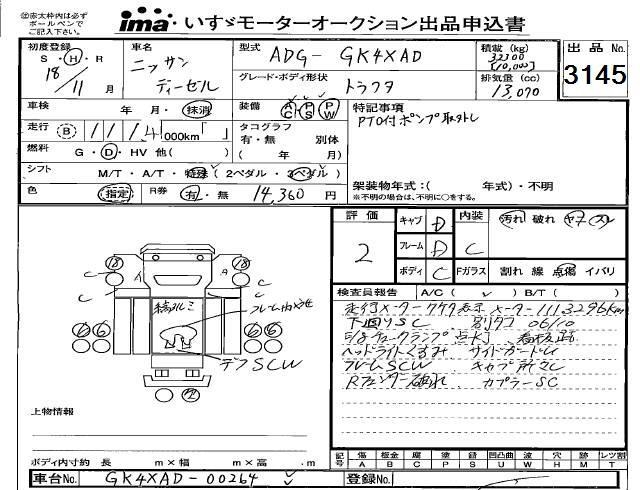 ㊟赤太枠内は必ず
ボールペンで
ご記入下さい。
ima・いすゞモーターオークション出品申込書
初度登録
S・H・R
18/11月
車名
ニッサン
ディーゼル
型式 ADG- GK4XAD
積載(kg)
32300
[10,000]
グレード・ボディ形状 トラクタ
排気量(cc)
13,070
出品No.
3145
車検 年・月・抹消
装備 AC PS PW
特記事項
PTO付ポンプ取外し
走行 B 111.4,000km「 」
タコグラフ
有・無 別体
( 年 月)
燃料 G・D・HV 他( )
シフト M/T・A/T・特殊(2ペダル・3ペダル)
架装物年式:( 年式)・不明
※不明の場合は、不明に○をする。
色 指定 R券 有・無 14,360円
評価 2
キャブ D
フレーム D
ボディ C
内装 C
汚れ 破れ ヤブ スレ
Fガラス 割れ 線 点傷 イバリ
検査員報告 A/C( ✓ ) B/T( )
表示 メーター 1113296km
下回りSC 06/10
ヘッドライトくもり サイドガード
フレームSCW
Rフェンダー破れ カプラーSC
18 18
C C
A A
C C
6 6 6 6
縞アルミ
デフSCW
上物情報
ボディ内寸約 長 m×幅 m×高 m
記号 傷A 板金B 腐C 塗P 錆S 凹凸曲U 波W 穴H 跡M レンズ割T
車台No. GK4XAD-00264
登録No.